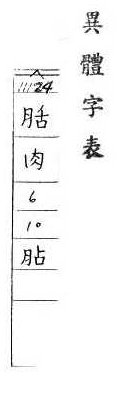 異體字表
䏦
肉
6
10
胋